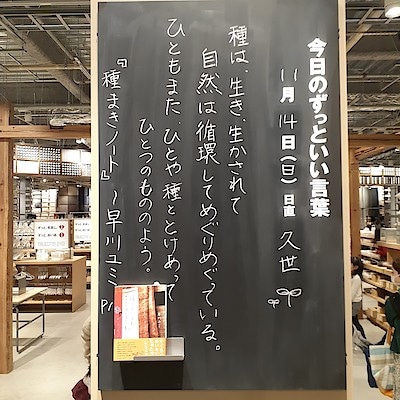 今日のずっといい言葉
11月14日(日) 日直 久世
種は、生き、生かされて
自然は循環してめぐりめぐっている。
ひともまた、ひとや種ととけあって
ひとつのもののよう。
『種まきノート』〜早川ユミ